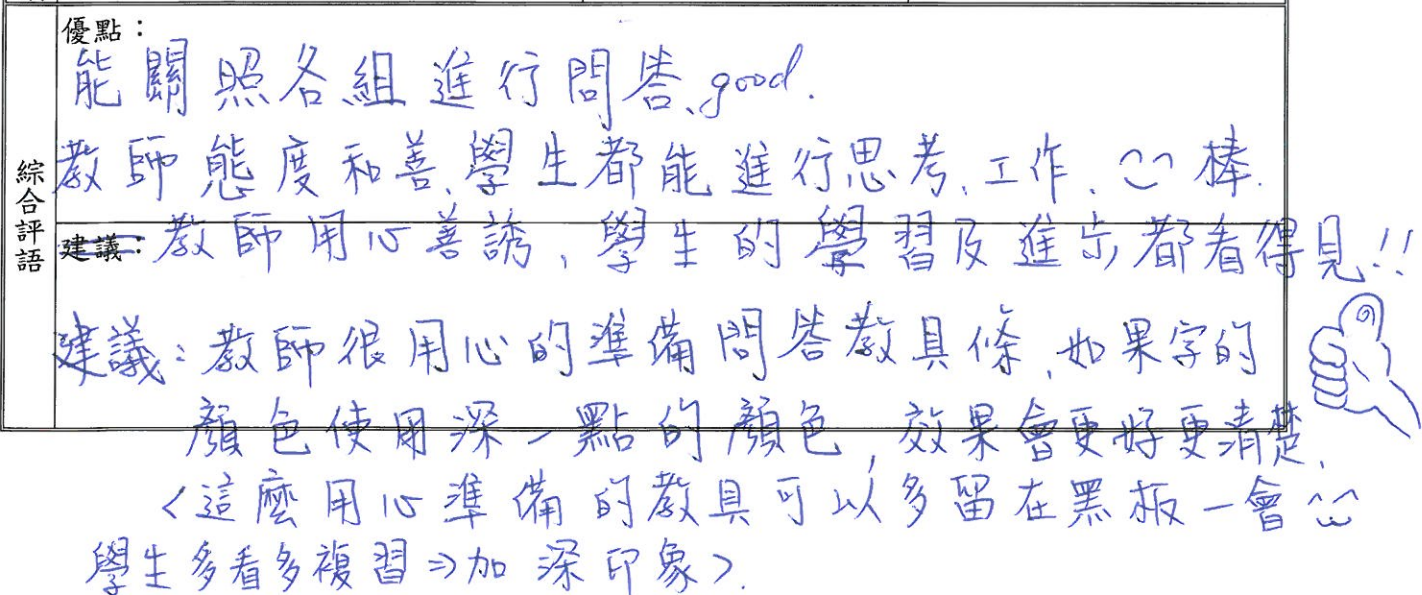 綜合評語
優點：
能關照各組進行問答、good.
教師態度和善、學生都能進行思考、工作、棒.
建議：教師用心善誘、學生的學習及進步都看得見!!
建議：教師很用心的準備問答教具條、如果字的
顏色使用深一點的顏色，效果會更好更清楚、
<這麼用心準備的教具可以多留在黑板一會
學生多看多複習⇒加深印象>.